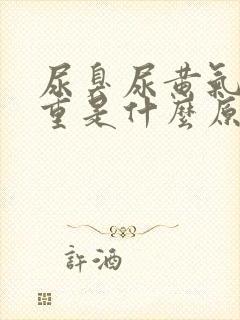 尿臭尿黄氣
重是什麼原
許酒